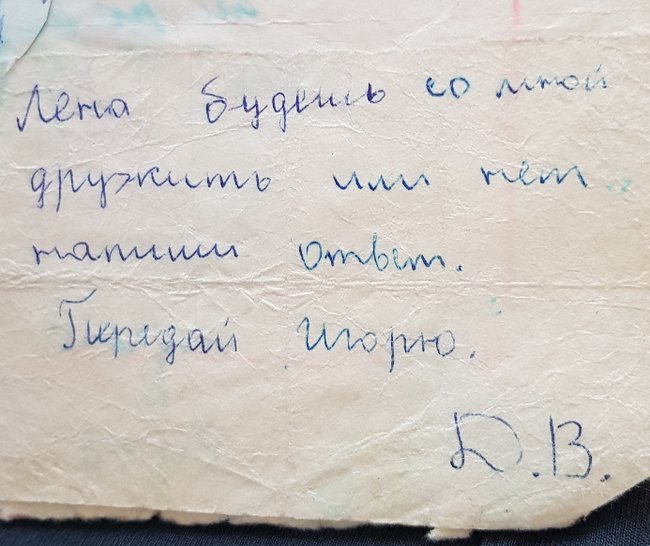 Лена будешь со мной
дружить или нет
напиши ответ.
Передай Игорю.
Д.В.